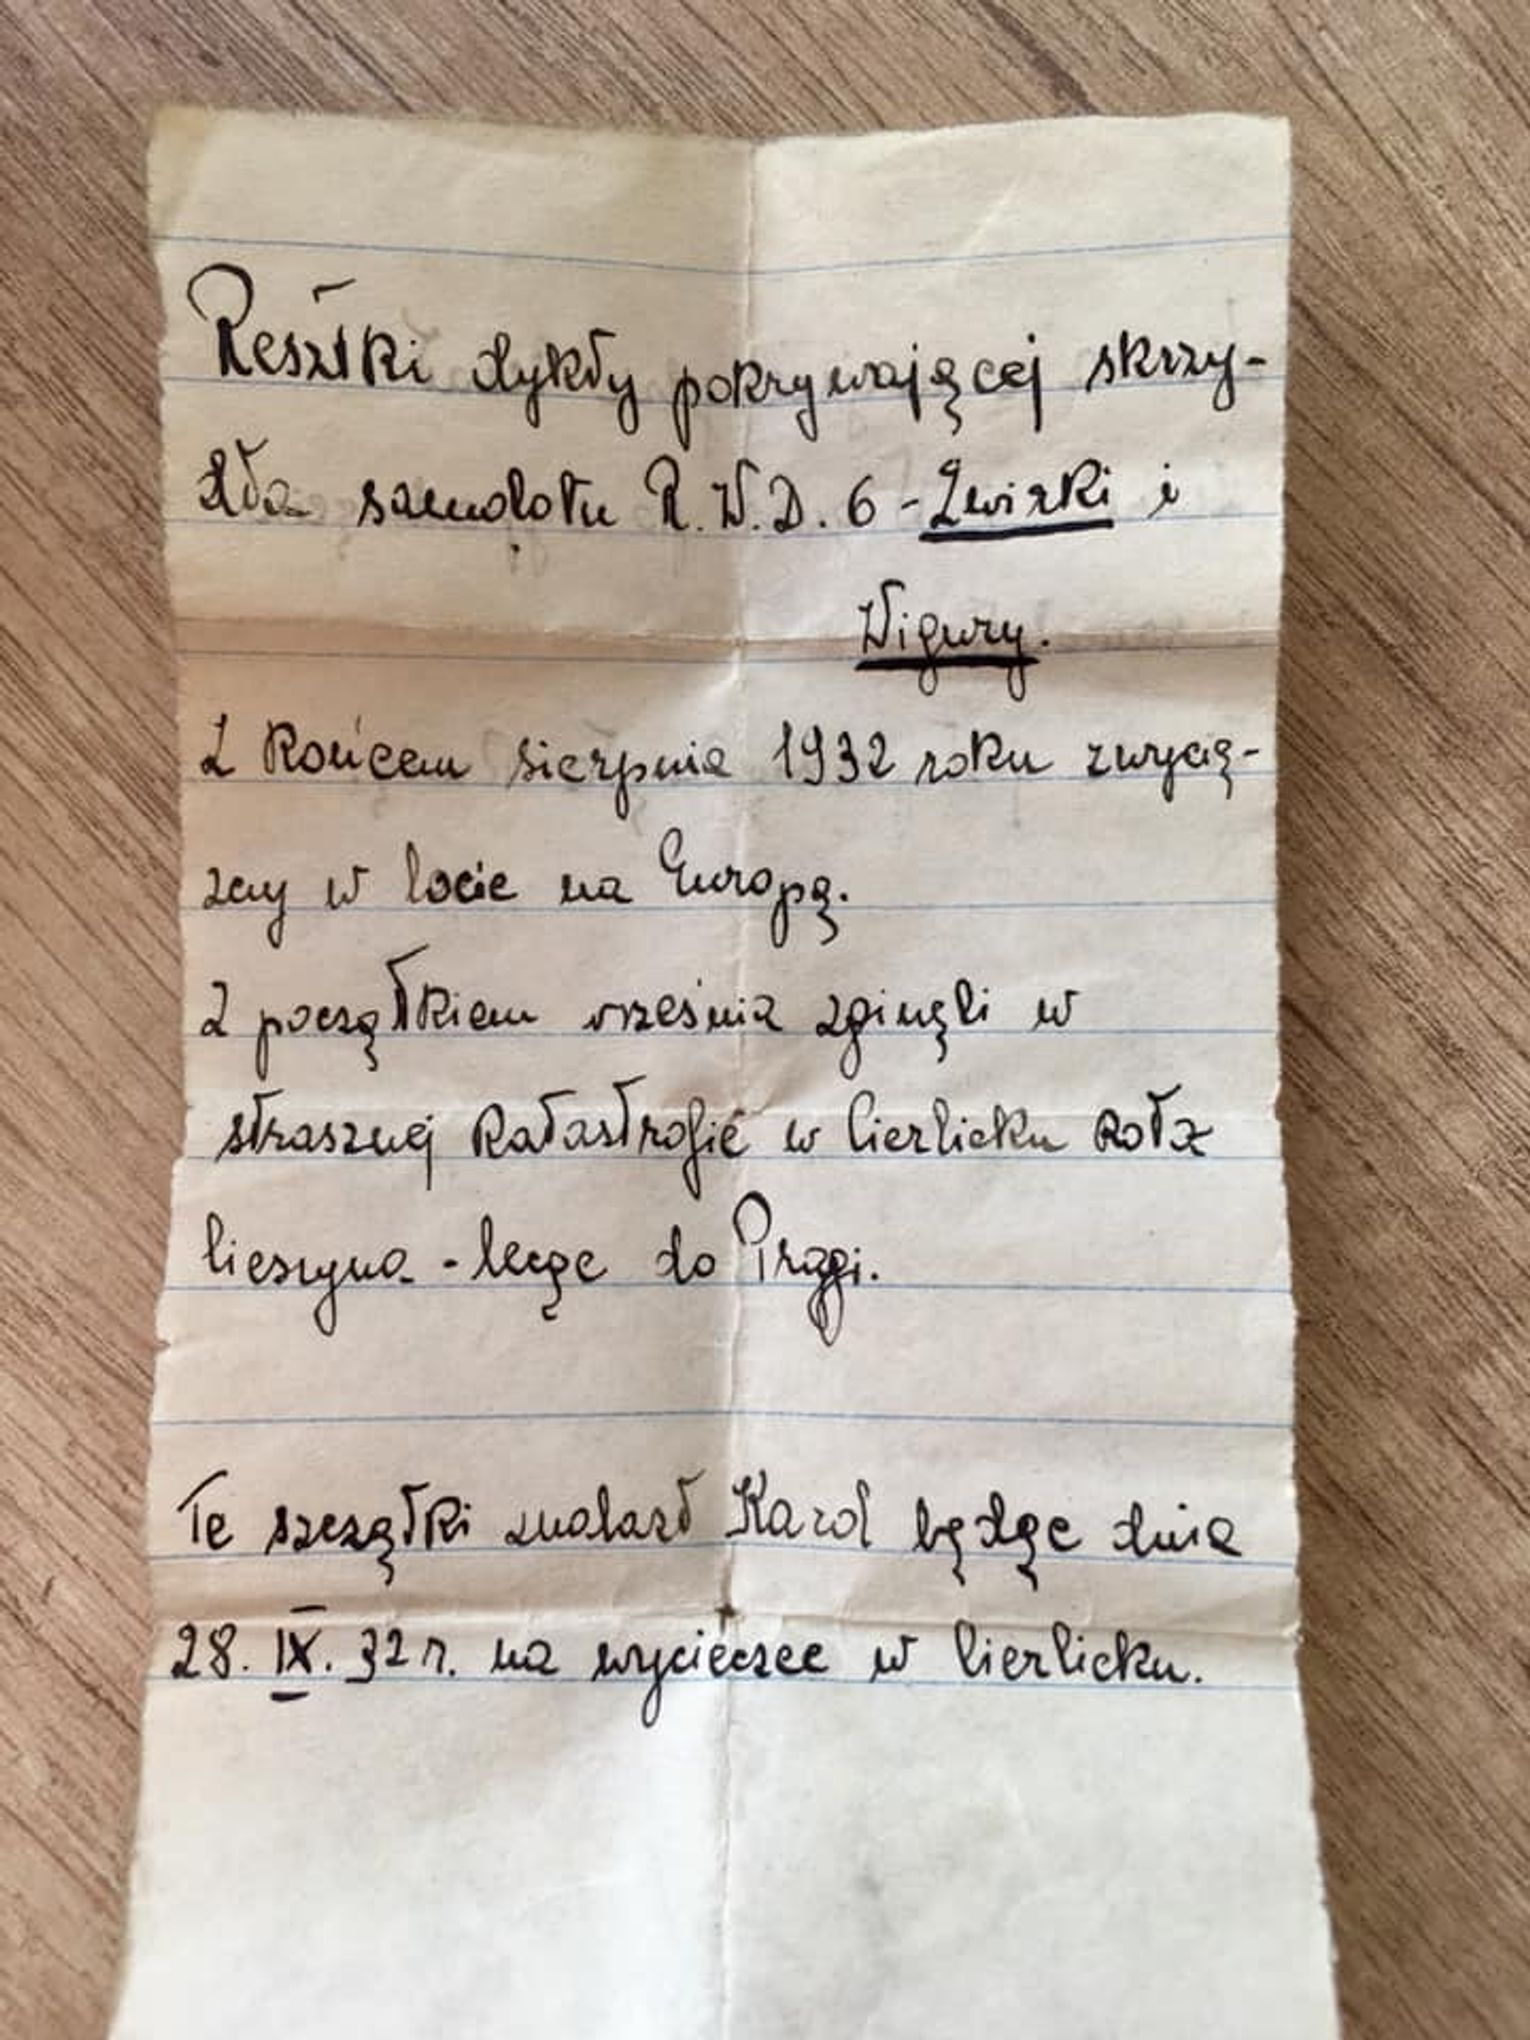 Resztki dykty pokrywającej skrzy-
dła samolotu R.W.D. 6 - Żwirki i
Wigury.
Z końcem sierpnia 1932 roku zwycię-
zcy w locie na Europą.
Z początkiem września zginęli w
strasznej katastrofie w Cierlicku koło
Cieszyna - lecąc do Pragi.
Te szczątki znalazł Karol będąc dnia
28. IX. 32 r. na wycieczce w Cierlicku.